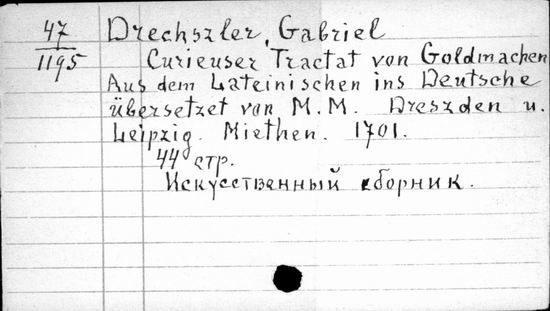 47 Drechszler, Gabriel
1195 Curieuser Tractat von Goldmachen
Aus dem Lateinischen ins Deutsche
übersetzet von M. M. Dreszden u.
Leipzig. Miethen. 1701.
44 стр.
Искусственный сборник.